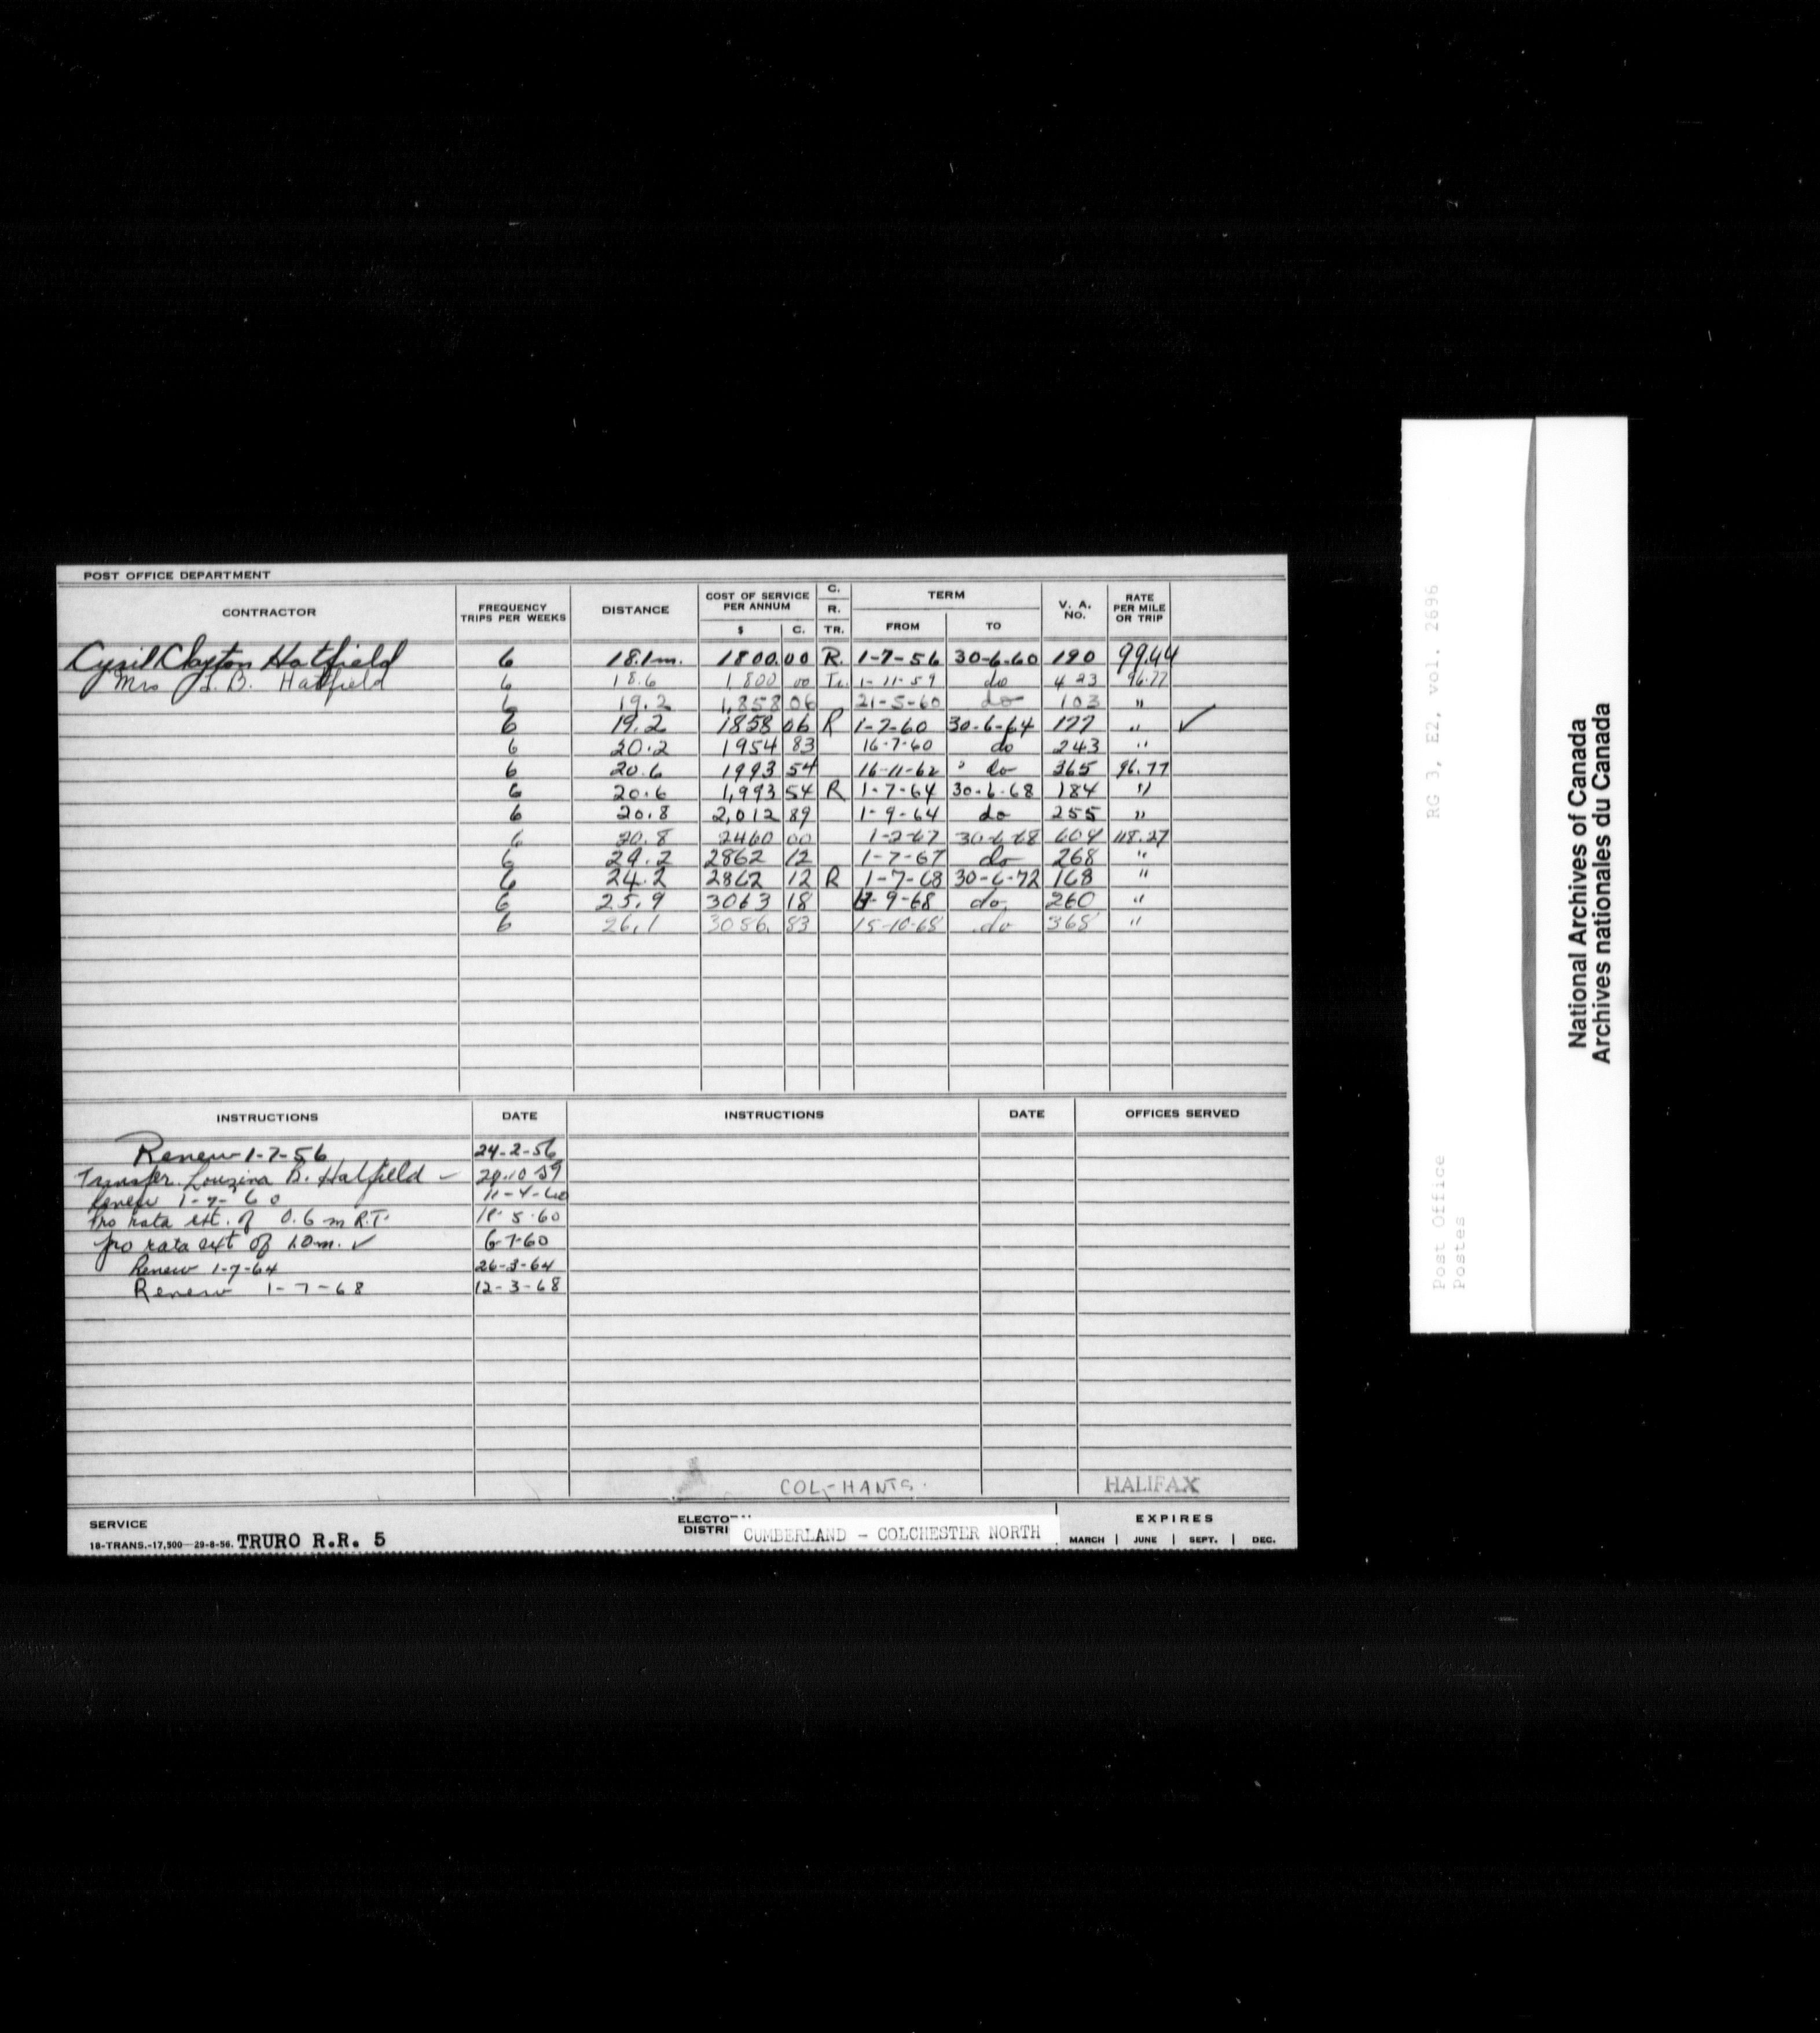 POST OFFICE DEPARTMENT
CONTRACTOR FREQUENCY TRIPS PER WEEKS DISTANCE COST OF SERVICE PER ANNUM $ C. C. R. TR. TERM FROM TO V. A. NO. RATE PER MILE OR TRIP
Cyril Clayton Hatfield 6 18.1m. 1800.00 R. 1-7-56 30-6-60 190 99.44
Mrs L. B. Hatfield 6 18.6 1,800 00 Tr. 1-11-59 do 423 96.77
6 19.2 1,858 06 21-5-60 do 103 "
6 19.2 1858 06 R 1-7-60 30-6-64 177 " ✓
6 20.2 1954 83 16-7-60 do 243 "
6 20.6 1993 54 16-11-62 do 365 96.77
6 20.6 1,993 54 R 1-7-64 30-6-68 184 "
6 20.8 2,012 89 1-9-64 do 255 "
6 20.8 2460 00 1-2-67 30-6-68 604 118.27
6 24.2 2862 12 1-7-67 do 268 "
6 24.2 2862 12 R 1-7-68 30-6-72 168 "
6 25.9 3063 18 9-68 do 260 "
6 26.1 3086. 83 15-10-68 do 368 "
INSTRUCTIONS DATE INSTRUCTIONS DATE OFFICES SERVED
Renew 1-7-56 24-2-56
Transfer Louzina B. Hatfield 29-10-59
Renew 1-7-60 11-4-60
Pro rata ext. of 0.6 m R.T. 18-5-60
pro rata ext of 1.0 m. ✓ 6-7-60
Renew 1-7-64 26-3-64
Renew 1-7-68 12-3-68
COL-HANTS. HALIFAX
SERVICE ELECTO DISTRI CUMBERLAND - COLCHESTER NORTH EXPIRES
18-TRANS.-17,500-29-8-56. TRURO R.R. 5 MARCH | JUNE | SEPT. | DEC.
RG 3, E2, vol. 2696
Post Office
Postes
National Archives of Canada
Archives nationales du Canada